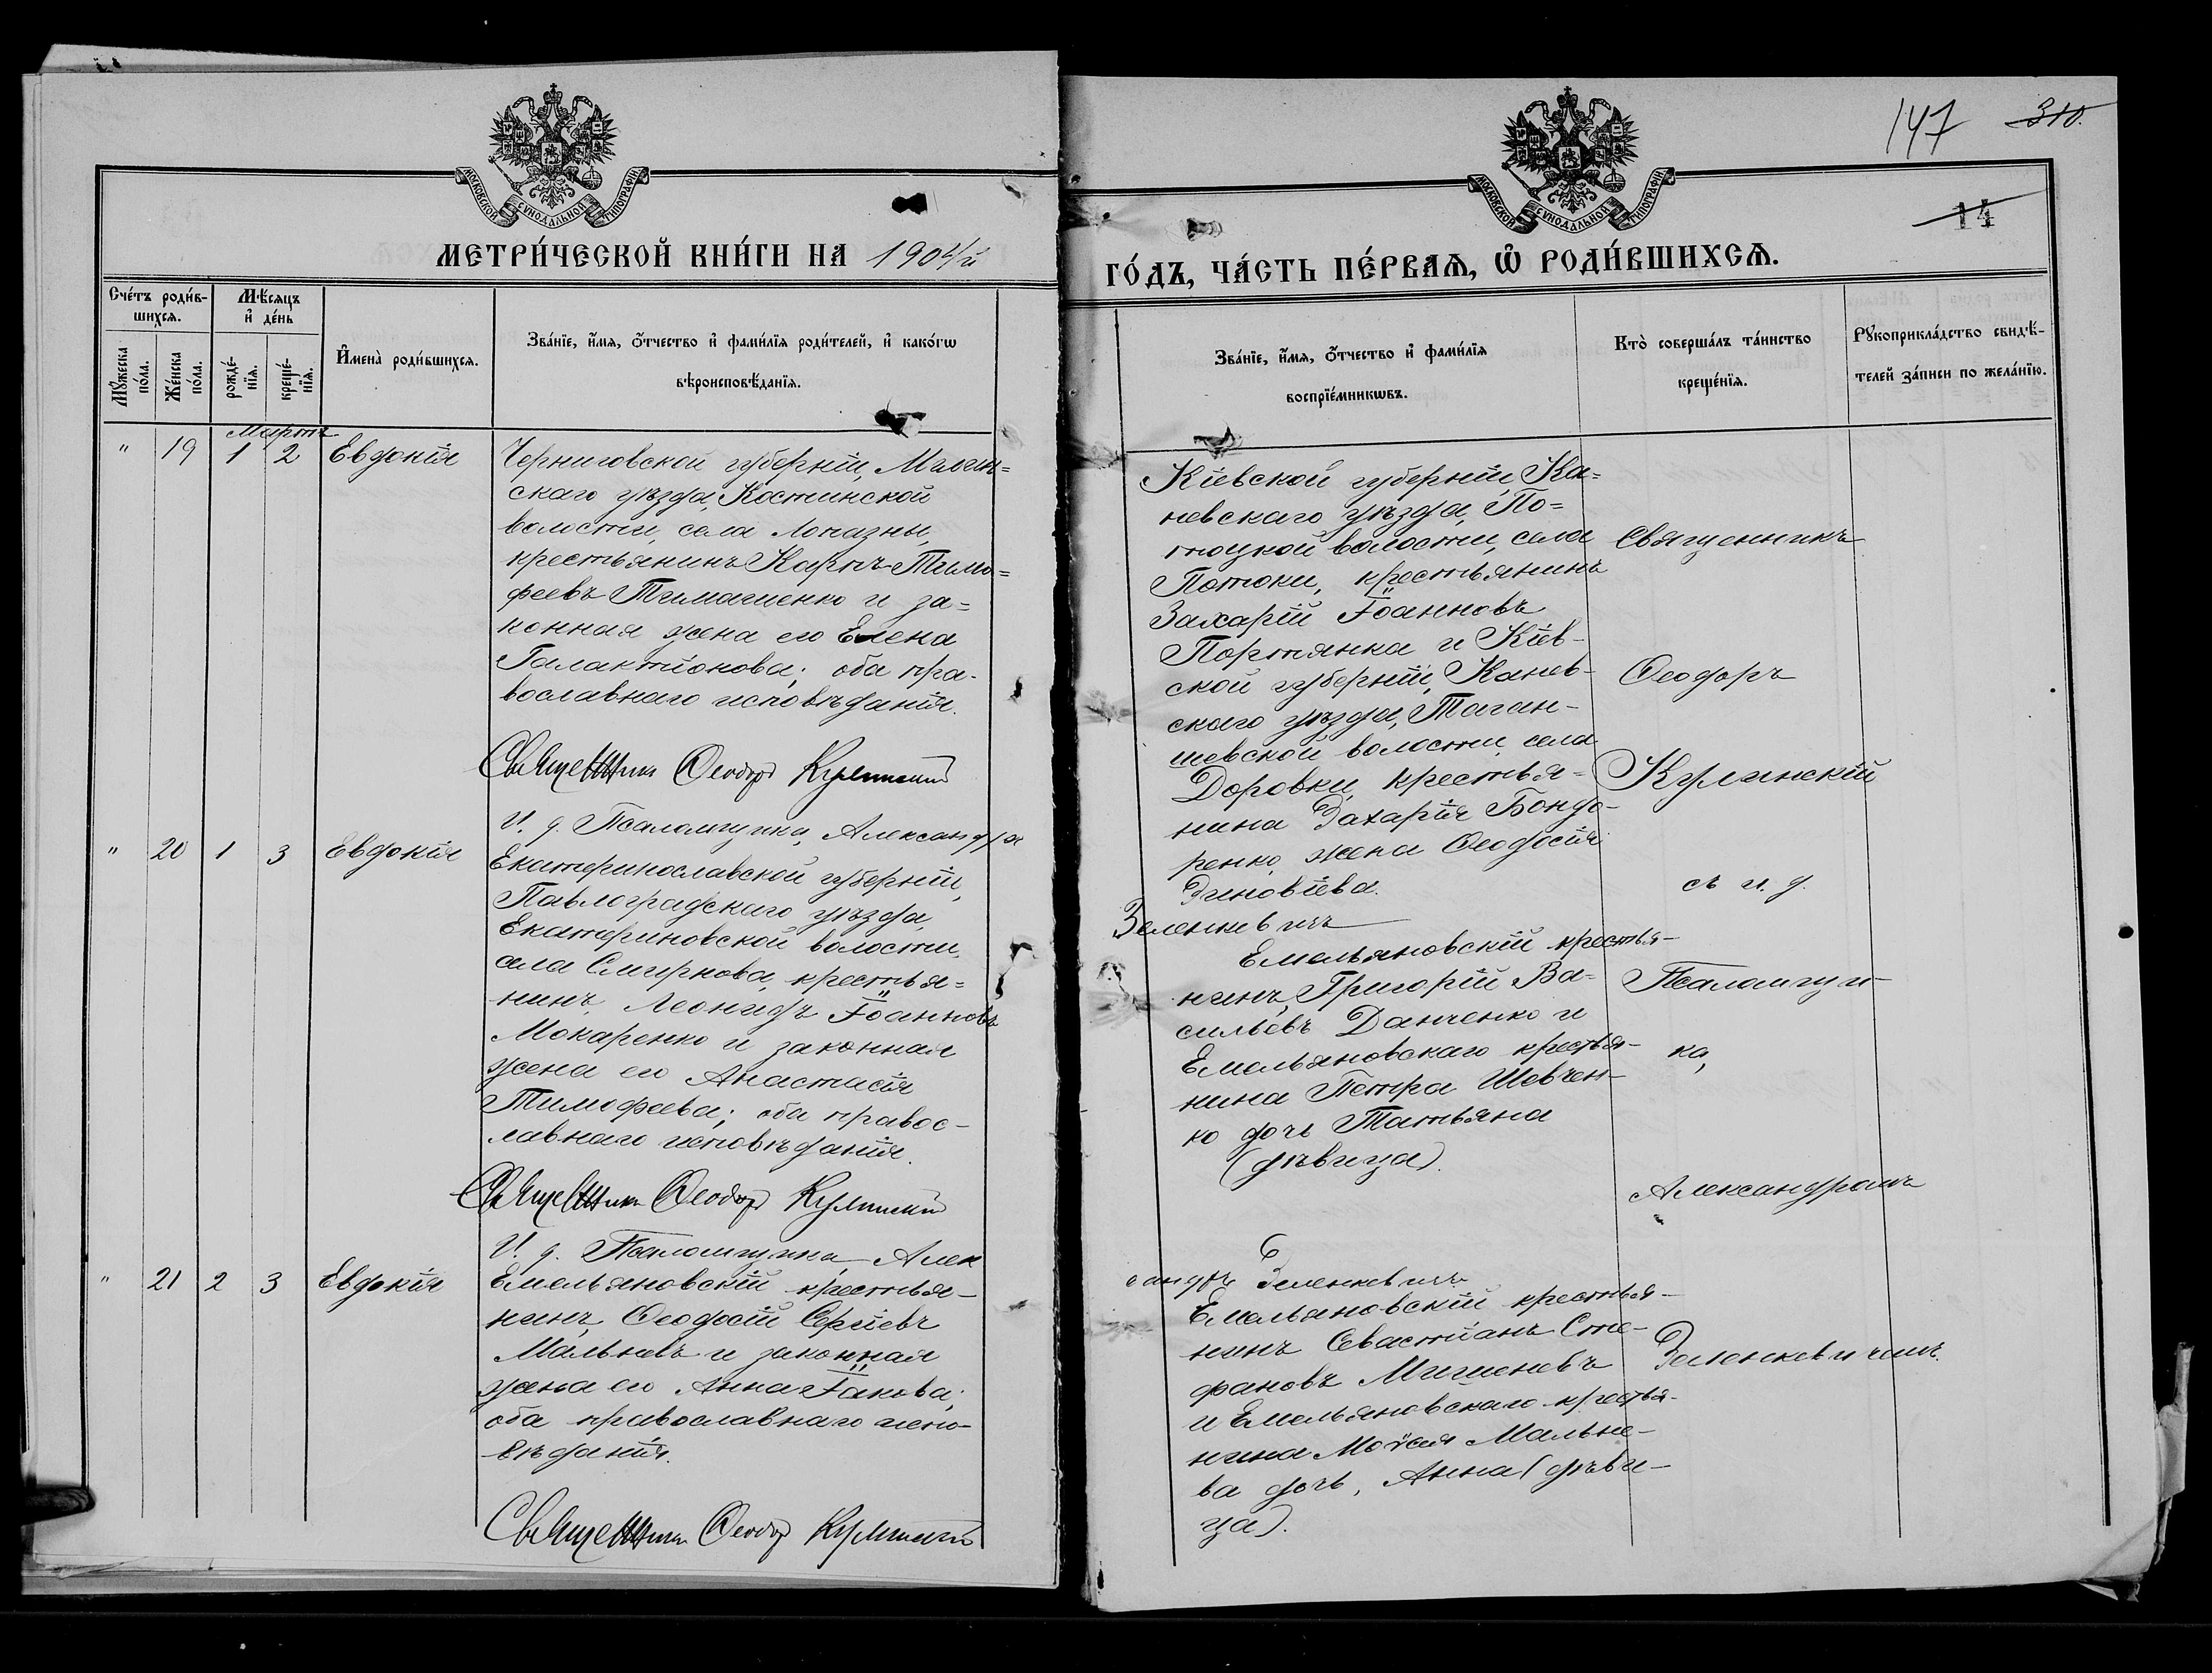 147 310.
МОСКОВСКОЙ СУНОДАЛЬНОЙ ТИПОГРАФІИ
МОСКОВСКОЙ СУНОДАЛЬНОЙ ТИПОГРАФІИ
14
МЕТРИ́ЧЕСКОЙ КНИ́ГИ НА 1904/й
ГО́ДЪ, ЧА́СТЬ ПЕ́РВАѦ, Ѡ РОДИ́ВШИХСѦ.
Сче́тъ роди́в-
шихсѧ.
Мꙋ́жеска по́ла.
Же́нска по́ла.
Мѣ́сѧцъ
и҆ де́нь
рожде́-
нїѧ.
креще́-
нїѧ.
И҆мена̀ роди́вшихсѧ.
Зва́нїе, и҆́мѧ, ѻ҆́тчество и҆ фами́лїѧ роди́телей, и҆ како́гѡ
вѣроисповѣ́данїѧ.
Зва́нїе, и҆́мѧ, ѻ҆́тчество и҆ фами́лїѧ
воспрїе́мникѡвъ.
Кто̀ соверша́лъ та́инство
креще́нїѧ.
Рꙋкоприкла́дство свидѣ́-
телей за́писи по жела́нїю.
Мартъ
" 19 1 2 Евдокія
Черниговской губерніи, Мглин=
скаго уѣзда, Костинской
волости, села Лопазны,
крестьянинъ Карпъ Тимо=
феевъ Тимашенко и за=
конная жена его Елена
Галактіонова; оба пра-
вославнаго исповѣданія.
Священникъ Ѳеодоръ Кулинскій
И. д. Псаломщика, Александръ
Кіевской губерніи, Ка=
невскаго уѣзда, По=
тоцкой волости, села
Потоки, крестьянинъ
Захарій Іоанновъ
Портянка и Кіев-
ской губерніи, Канев-
скаго уѣзда, Таган-
шевской волости, села
Доровки, крестья-
нина Захарія Бондо-
ренко, жена Ѳеодосія
Зиновіева.
Зеленкевичъ
Священникъ
Ѳеодоръ
Кулинскій
съ и. д.
Псаломщи-
ка,
Александромъ
Зеленкевичемъ.
" 20 1 3 Евдокія
Екатеринославской губерніи,
Павлоградскаго уѣзда,
Екатериновской волости,
села Смирнова, крестья=
нинъ, Леонидъ Іоанновъ
Мокаренко и законная
жена его Анастасія
Тимофеева; оба правос-
лавнаго исповѣданія.
Священникъ Ѳеодоръ Кулинскій
И. д. Псаломщика, Алек
Емельяновскій крестья-
нинъ, Григорій Ва=
сильевъ Данченко и
Емельяновскаго крестья-
нина Петра Шевчен-
ко дочь Татьяна
(дѣвица).
сандръ Зеленкевичъ
" 21 2 3 Евдокія
Емельяновскій крестья-
нинъ, Ѳеодосій Сергіевъ
Мальневъ и законная
жена его Анна Іакова;
оба православнаго испо-
вѣданія.
Священникъ Ѳеодоръ Кулинскій
Емельяновскій крестья-
нинъ Севастіанъ Сте-
фановъ Мишеневъ
и Емельяновскаго крестья-
нина Моѵсея Мальне-
ва дочь, Анна (дѣви-
ца).